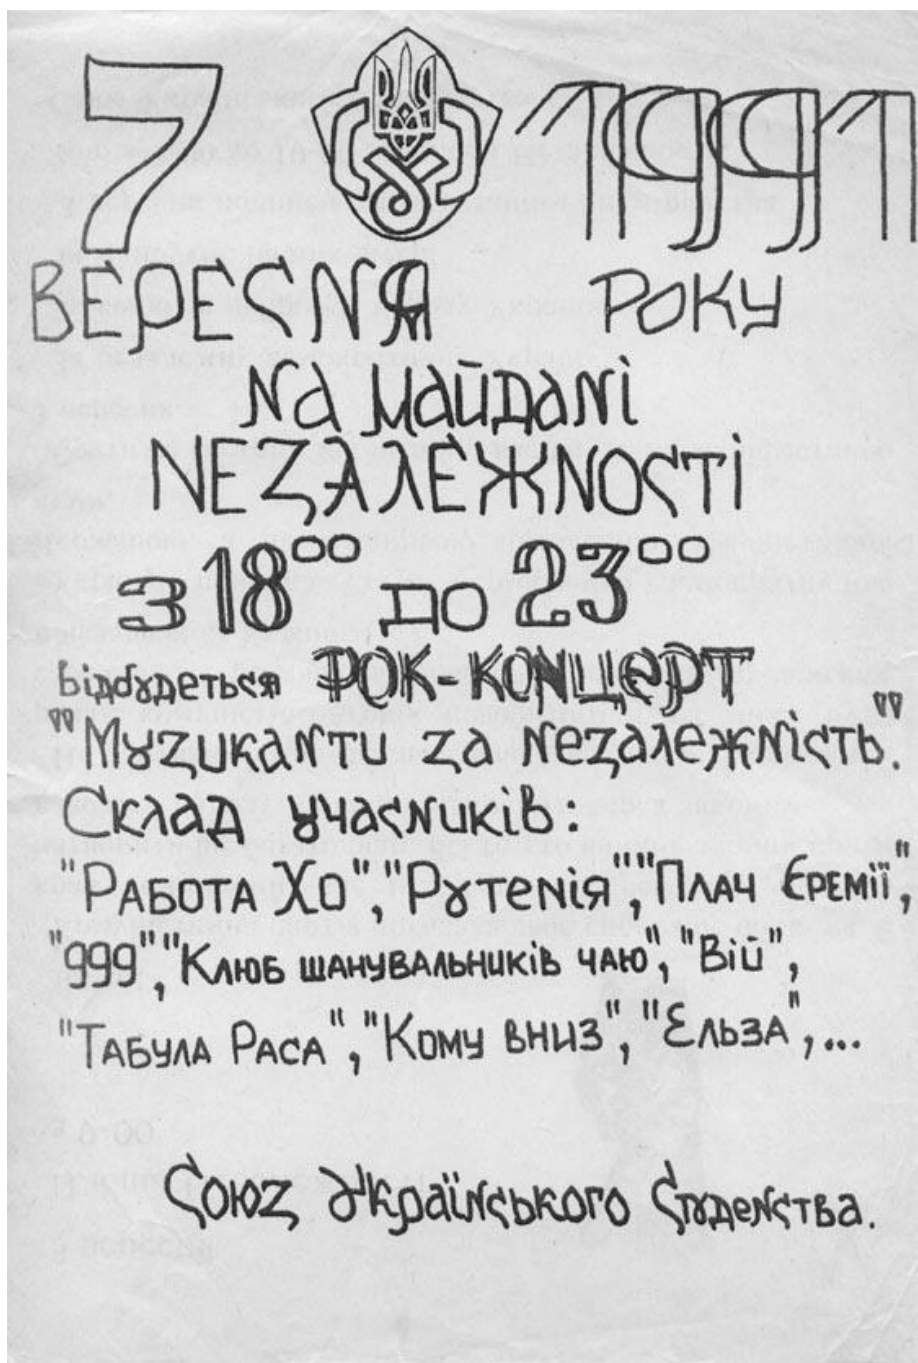 7 1991
ВЕРЕСНЯ РОКУ
НА МАЙДАНІ
НЕЗАЛЕЖНОСТІ
З 18⁰⁰ ДО 23⁰⁰
відбудеться РОК-КОНЦЕРТ
"Музиканти за незалежність".
Склад учасників:
"РАБОТА ХО", "Рутенія", "ПЛАЧ ЄРЕМІЇ",
"999", "Клюб шанувальників чаю", "Вій",
"ТАБУЛА РАСА", "Кому вниз", "ЕЛЬЗА",...
Союз Українського Студенства.